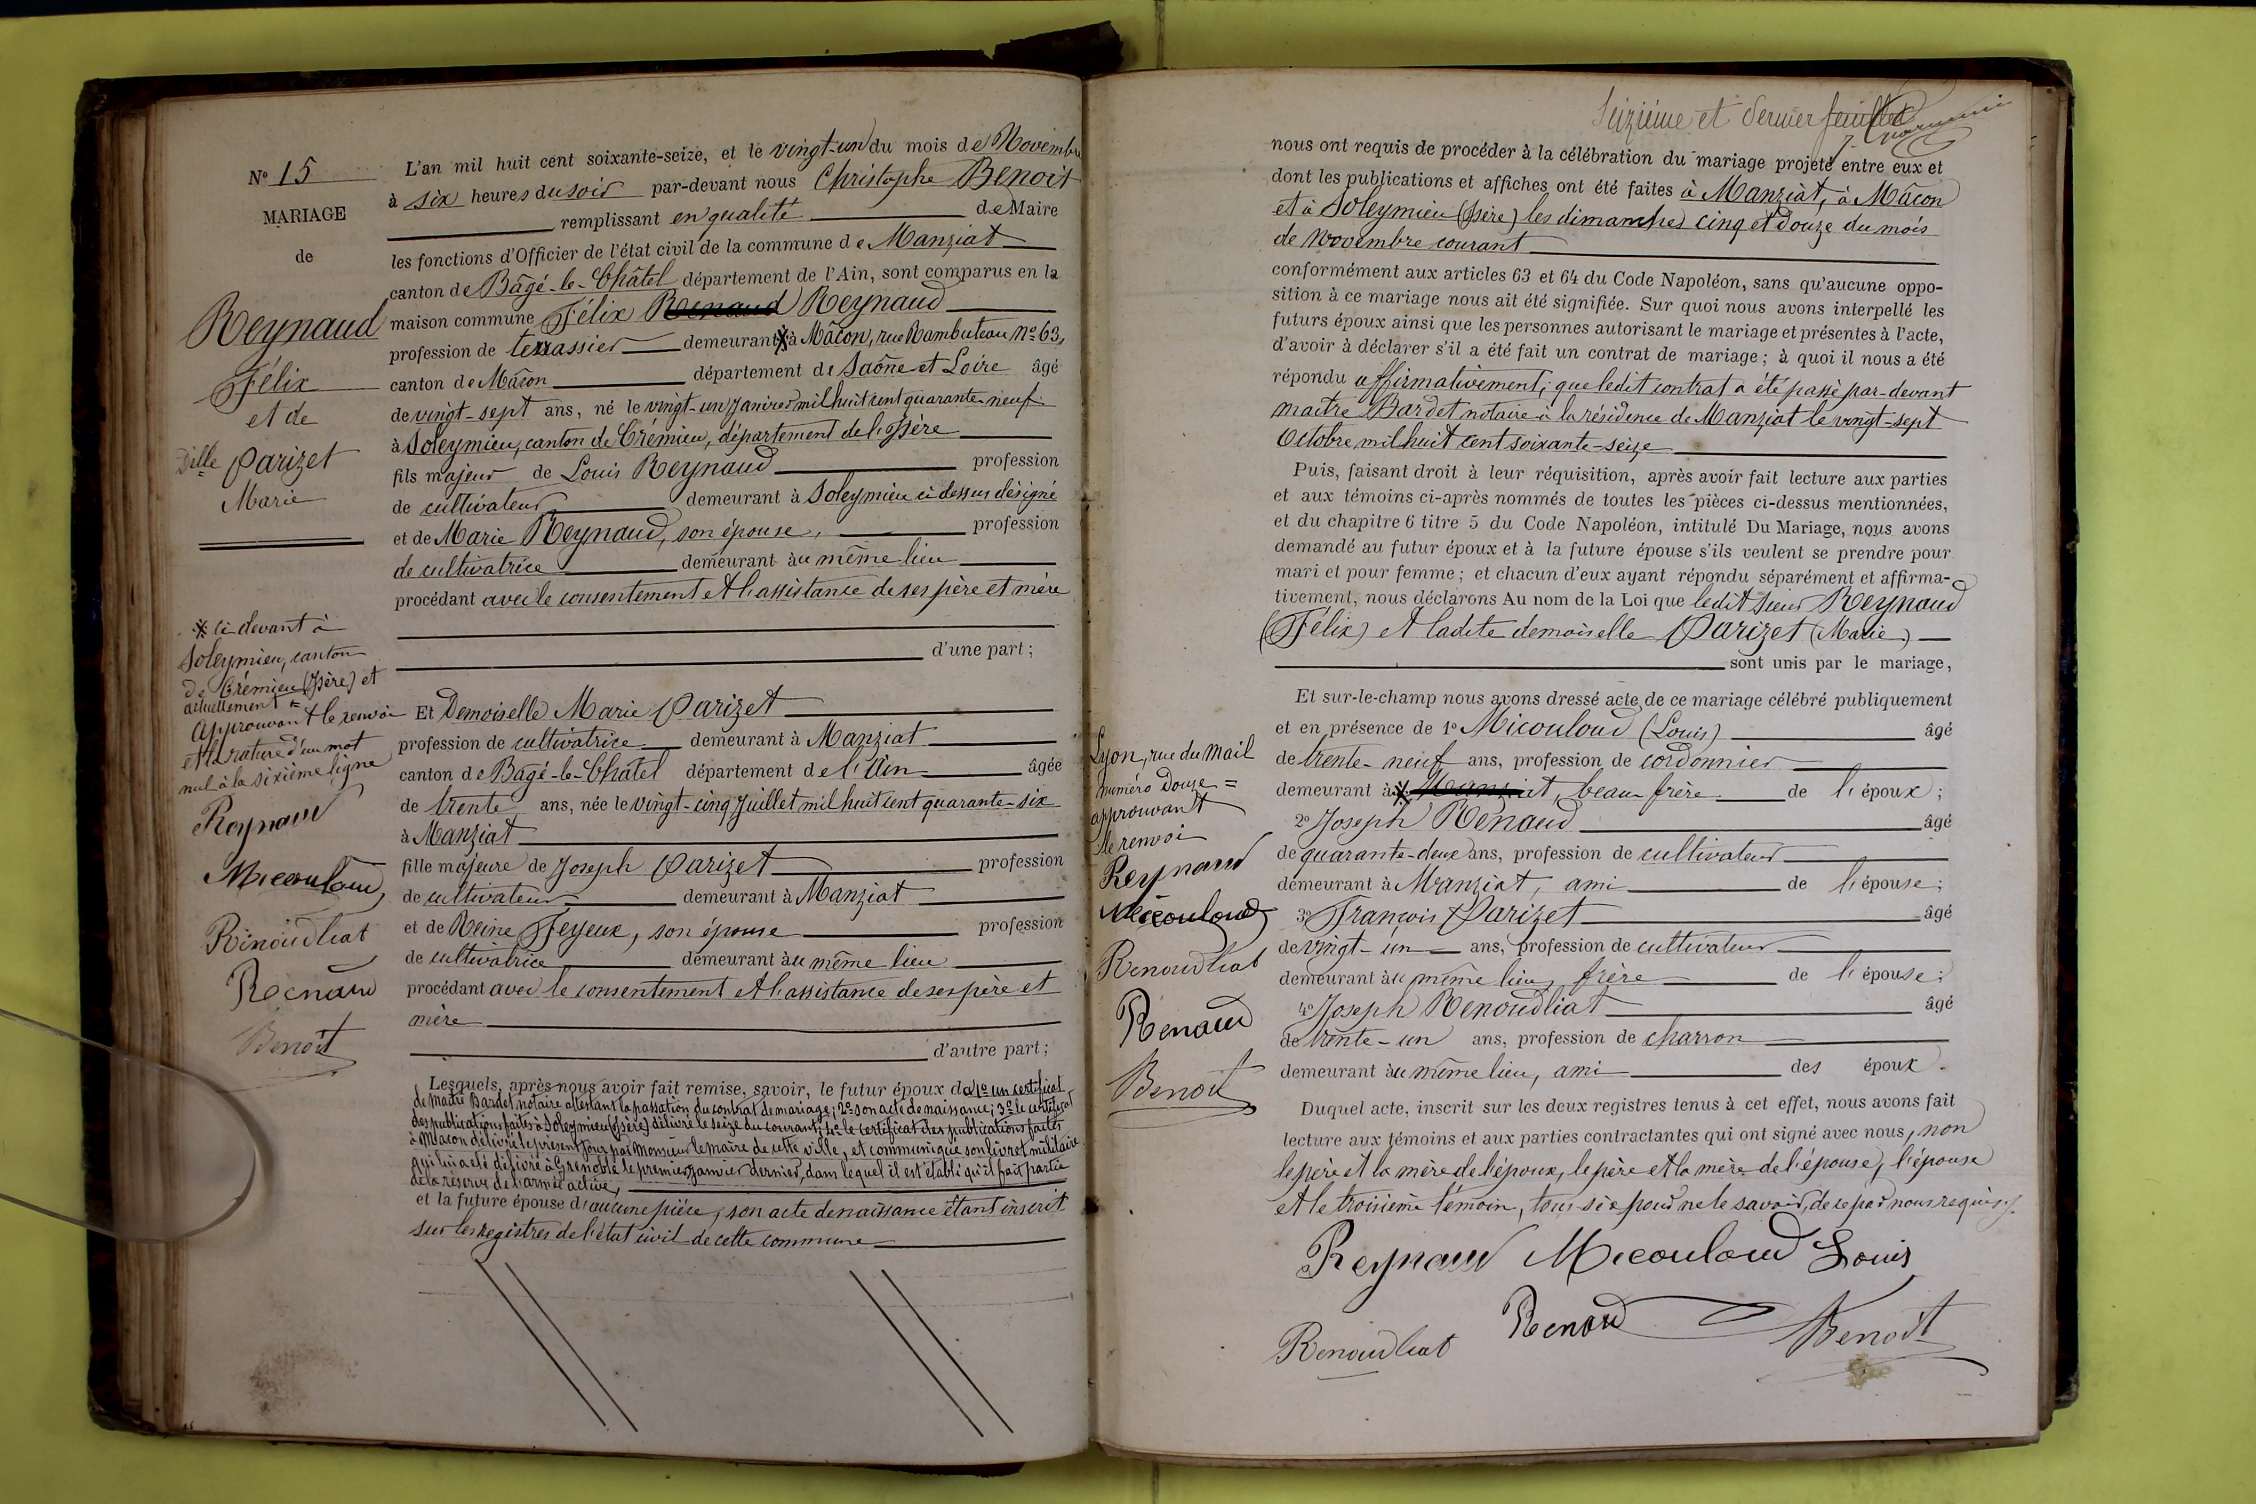 N° 15
MARIAGE
de
Reynaud
Félix
et de
Dlle Parizet
Marie
L'an mil huit cent soixante-seize, et le vingt-un du mois de Novembre
à six heures du soir par-devant nous Christophe Benoit
remplissant en qualité de Maire
les fonctions d'Officier de l'état civil de la commune de Manziat
canton de Bâgé-le-Châtel département de l'Ain, sont comparus en la
maison commune Félix Renaud Reynaud
profession de terrassier demeurant à Mâcon, rue Rambuteau N° 63,
canton de Mâcon département de Saône et Loire âgé
de vingt-sept ans, né le vingt-un Janvier mil huit cent quarante-neuf
à Soleymieu, canton de Crémieu, département de l'Isère
fils majeur de Louis Reynaud profession
de cultivateur demeurant à Soleymieu ci-dessus désigné
et de Marie Reynaud, son épouse, profession
de cultivatrice demeurant au même lieu
procédant avec le consentement et l'assistance de ses père et mère
d'une part;
Et Demoiselle Marie Parizet
profession de cultivatrice demeurant à Manziat
canton de Bâgé-le-Châtel département de l'Ain âgée
de trente ans, née le vingt-cinq Juillet mil huit cent quarante-six
à Manziat
fille majeure de Joseph Parizet profession
de cultivateur demeurant à Manziat
et de Reine Feyeux, son épouse profession
de cultivatrice demeurant au même lieu
procédant avec le consentement et l'assistance de ses père et
mère
d'autre part;
Lesquels, après nous avoir fait remise, savoir, le futur époux d 1° un certificat
de maître Bardet notaire attestant la passation du contrat de mariage; 2° son acte de naissance; 3° le certificat
des publications faites à Soleymieu (Isère) délivré le seize du courant; 4° le certificat des publications faites
à Mâcon délivré le présent jour par Monsieur le maire de cette ville, et communiqué son livret militaire
qui lui a été délivré à Grenoble le premier janvier dernier, dans lequel il est établi qu'il fait partie
de la réserve de l'armée active,
et la future épouse d'aucune pièce, son acte de naissance étant inscrit
sur les registres de l'état civil de cette commune
ci devant à
Soleymieu, canton
de Crémieu (Isère) et
actuellement =
Approuvant le renvoi
et la rature d'un mot
nul à la sixième ligne
Reynaud
Micouloud
Renoudliat
Renaud
Benoit
Seizième et dernier feuillet
nous ont requis de procéder à la célébration du mariage projeté entre eux et
dont les publications et affiches ont été faites à Manziat, à Mâcon
et à Soleymieu (Isère) les dimanches cinq et douze du mois
de Novembre courant
conformément aux articles 63 et 64 du Code Napoléon, sans qu'aucune oppo-
sition à ce mariage nous ait été signifiée. Sur quoi nous avons interpellé les
futurs époux ainsi que les personnes autorisant le mariage et présentes à l'acte,
d'avoir à déclarer s'il a été fait un contrat de mariage; à quoi il nous a été
répondu affirmativement; que ledit contrat a été passé par-devant
maître Bardet notaire à la résidence de Manziat le vingt-sept
Octobre mil huit cent soixante-seize
Puis, faisant droit à leur réquisition, après avoir fait lecture aux parties
et aux témoins ci-après nommés de toutes les pièces ci-dessus mentionnées,
et du chapitre 6 titre 5 du Code Napoléon, intitulé Du Mariage, nous avons
demandé au futur époux et à la future épouse s'ils veulent se prendre pour
mari et pour femme; et chacun d'eux ayant répondu séparément et affirma-
tivement, nous déclarons Au nom de la Loi que ledit sieur Reynaud
(Félix) et ladite demoiselle Parizet (Marie)
sont unis par le mariage,
Et sur-le-champ nous avons dressé acte de ce mariage célébré publiquement
et en présence de 1° Micouloud (Louis) âgé
de trente-neuf ans, profession de cordonnier
demeurant à Manziat, beau-frère de l'époux;
2° Joseph Renaud âgé
de quarante-deux ans, profession de cultivateur
demeurant à Manziat, ami de l'épouse;
3° François Parizet âgé
de vingt-un ans, profession de cultivateur
demeurant au même lieu, frère de l'épouse;
4° Joseph Renoudliat âgé
de trente-un ans, profession de charron
demeurant au même lieu, ami des époux.
Duquel acte, inscrit sur les deux registres tenus à cet effet, nous avons fait
lecture aux témoins et aux parties contractantes qui ont signé avec nous, non
le père et la mère de l'époux, le père et la mère de l'épouse, l'épouse
et le troisième témoin, tous six pour ne le savoir, de ce par nous requis.
Reynaud Micouloud Louis
Renoudliat Renaud Benoit
Lyon, rue du Mail
numéro douze =
approuvant
le renvoi
Reynaud
Micouloud
Renoudliat
Renaud
Benoit